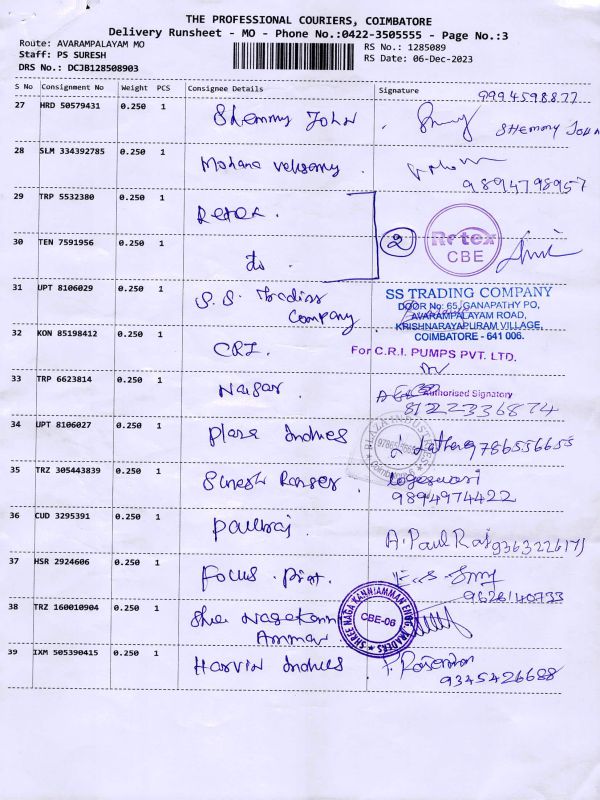 THE PROFESSIONAL COURIERS, COIMBATORE
Delivery Runsheet - MO - Phone No.:0422-3505555 - Page No.:3
Route: AVARAMPALAYAM MO
RS No.: 1285089
Staff: PS SURESH
RS Date: 06-Dec-2023
DRS No.: DCJB128508903
S No Consignment No Weight PCS Consignee Details Signature
9994598877
27 HRD 50579431 0.250 1 Shemmy John SHEMMY JOHN
28 SLM 334392785 0.250 1 Mohana
9894798957
29 TRP 5532380 0.250 1 Retex
Retex
CBE
2
30 TEN 7591956 0.250 1 do
31 UPT 8106029 0.250 1 S.S. Trading
Company
SS TRADING COMPANY
DOOR No: 65, GANAPATHY PO,
AVARAMPALAYAM ROAD,
KRISHNARAYAPURAM VILLAGE,
COIMBATORE - 641 006.
32 KON 85198412 0.250 1 CRI
For C.R.I. PUMPS PVT. LTD.
Authorised Signatory
33 TRP 6623814 0.250 1
8122336874
34 UPT 8106027 0.250 1 Plaza Indries
9786556655
35 TRZ 305443839 0.250 1 logeswari
9894974422
36 CUD 3295391 0.250 1 Paulraj A. Paul Raj
37 HSR 2924606 0.250 1 Focus Print
9626140733
38 TRZ 160010904 0.250 1 Shree Nagakanni
Amman
SHREE NAGA KANNIAMMAN ENGG TRADERS
CBE-06
39 IXM 505390415 0.250 1 Harvin Indries
9345426688